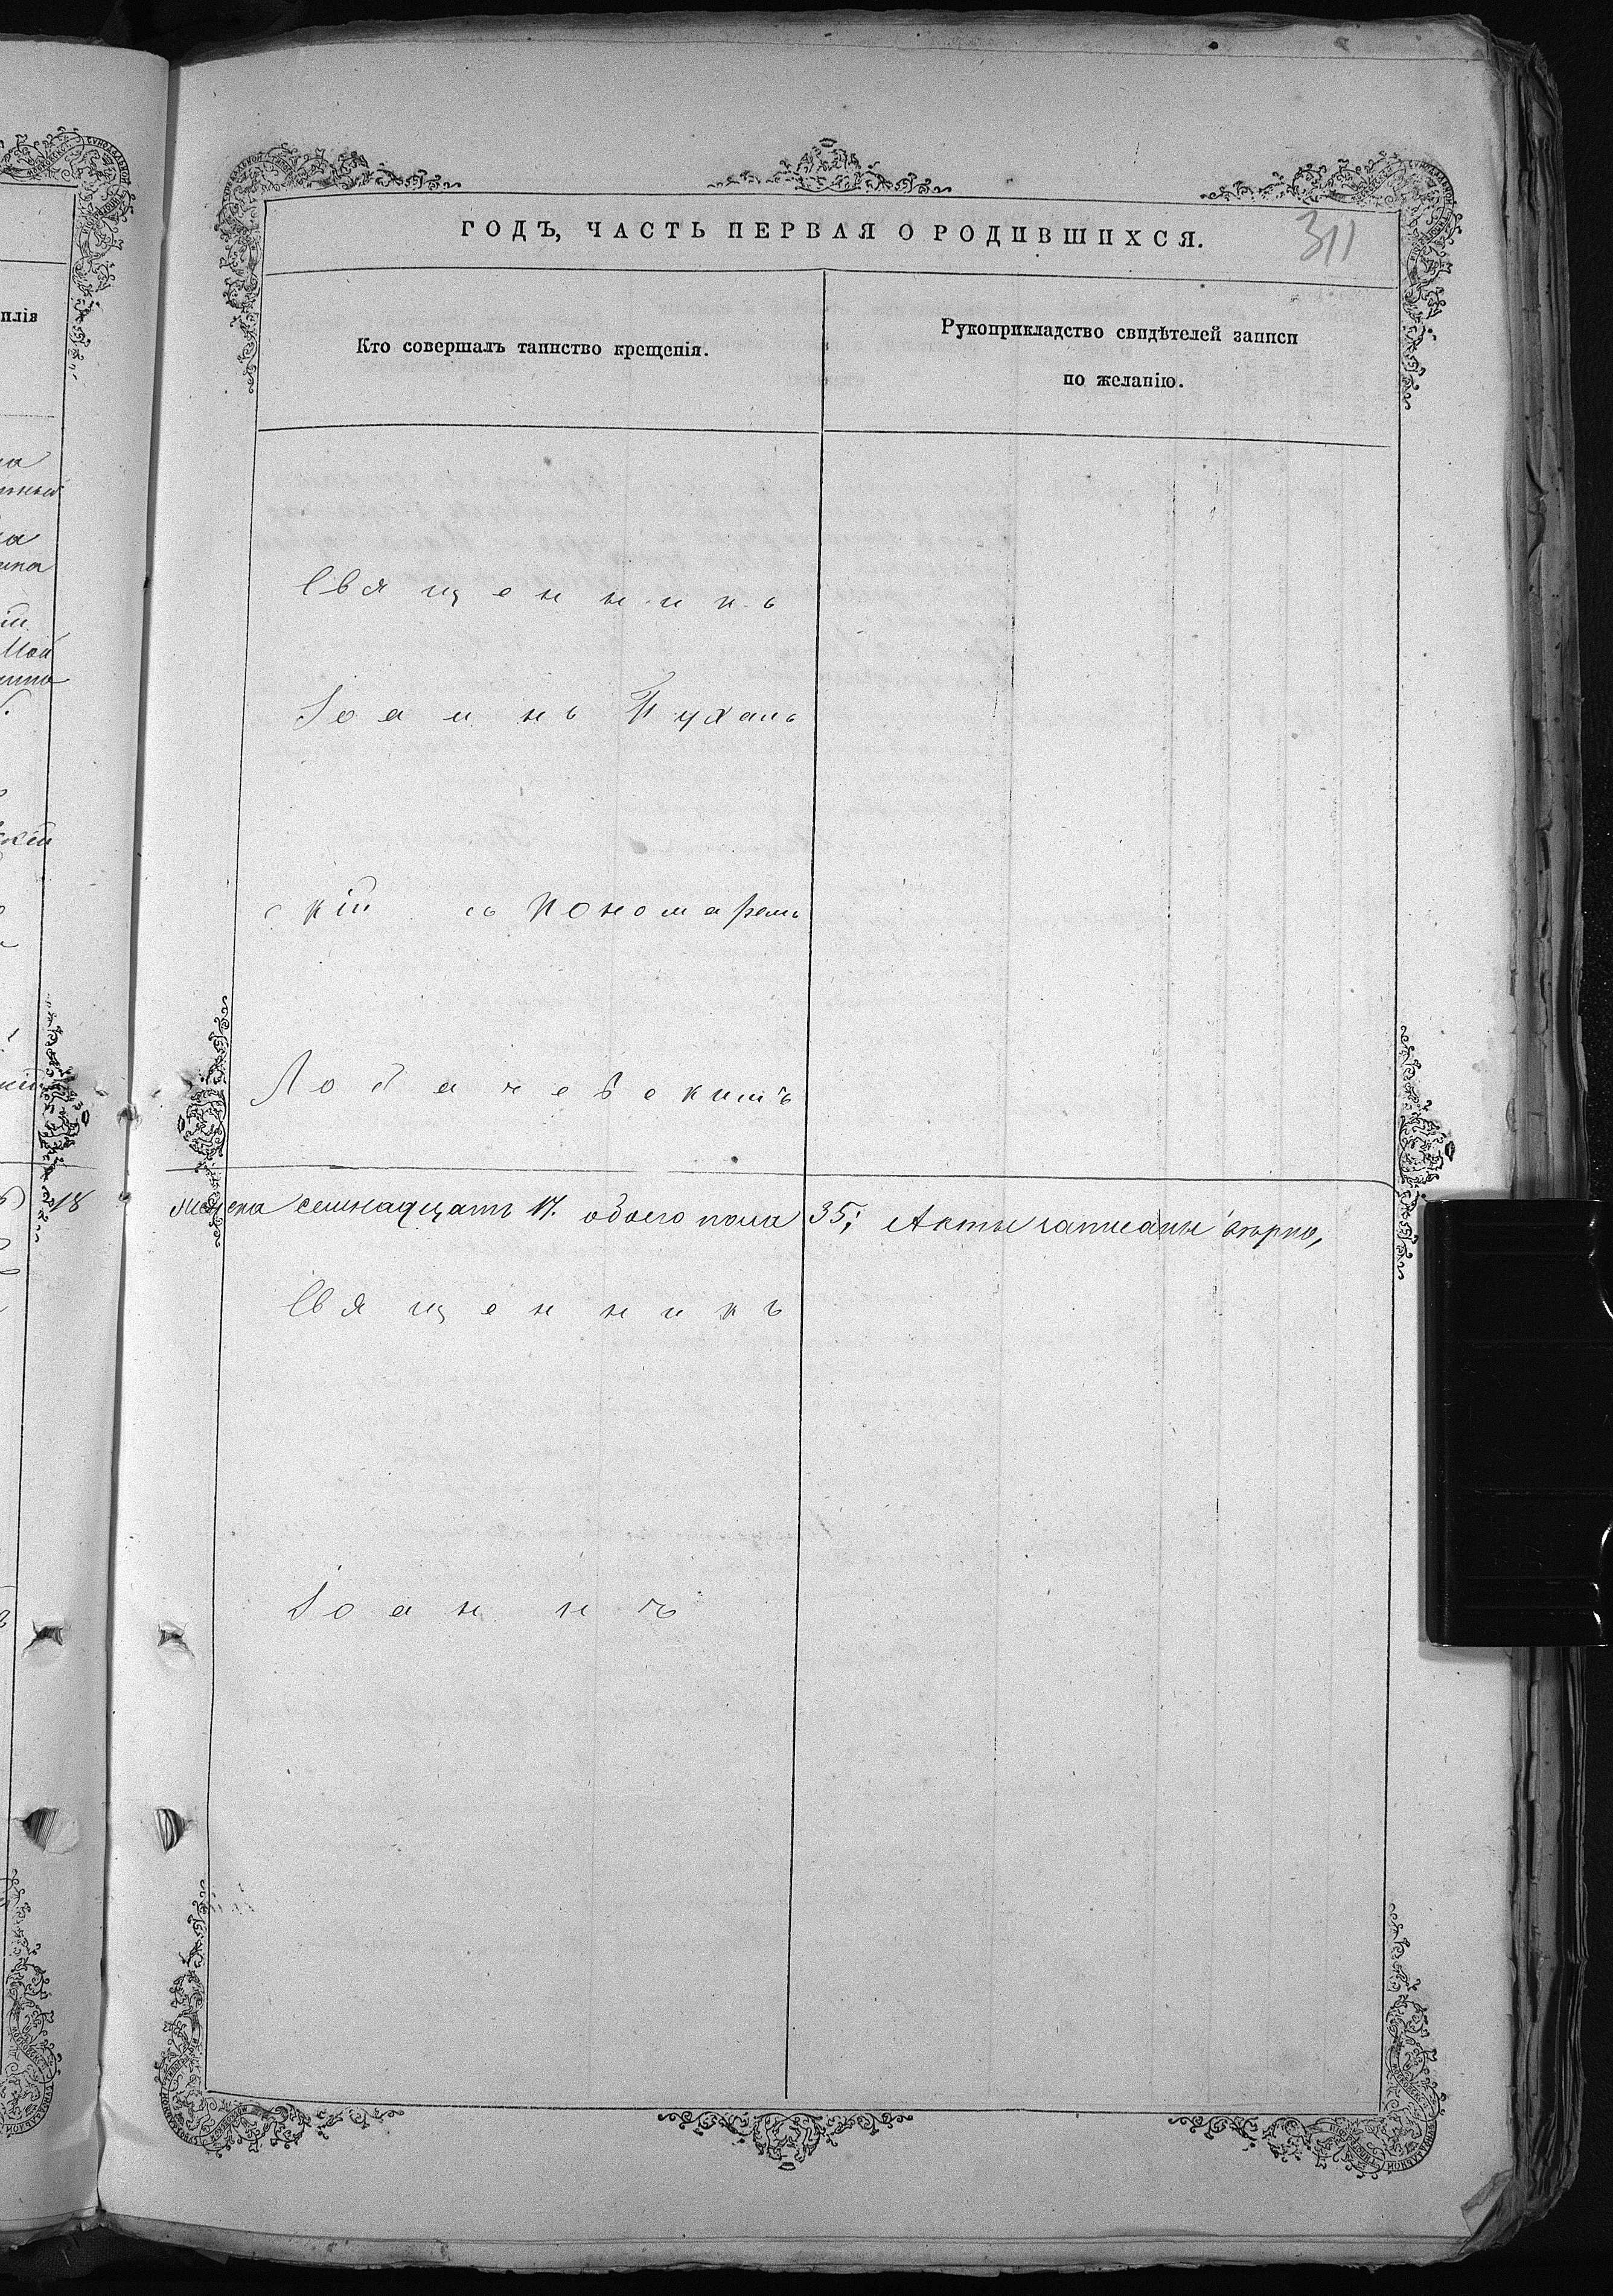 ГОДЪ, ЧАСТЬ ПЕРВАЯ О РОДИВШИХСЯ.
311
Кто совершалъ таинство крещенія.
Рукоприкладство свидѣтелей записи
по желанію.
Священникъ
Іоаннъ Пухаль
скій съ пономаремъ
Лобачевскимъ
женска семнадцать 17. обоего пола 35; Акты записаны вѣрно,
Священникъ
Іоаннъ
плія
на
на
ина
скій
18